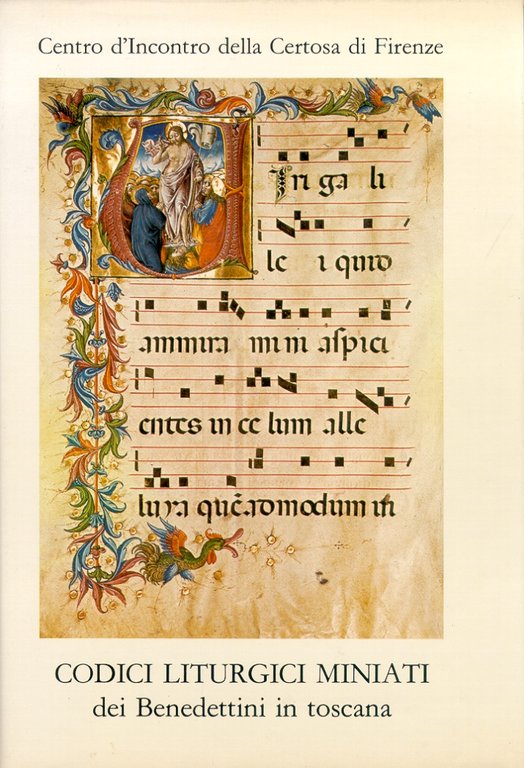 Centro d'Incontro della Certosa di Firenze
Viri ga li
le i quid
ammira mini aspici
entes in ce lum alle
luya quēadmodum in
CODICI LITURGICI MINIATI
dei Benedettini in toscana